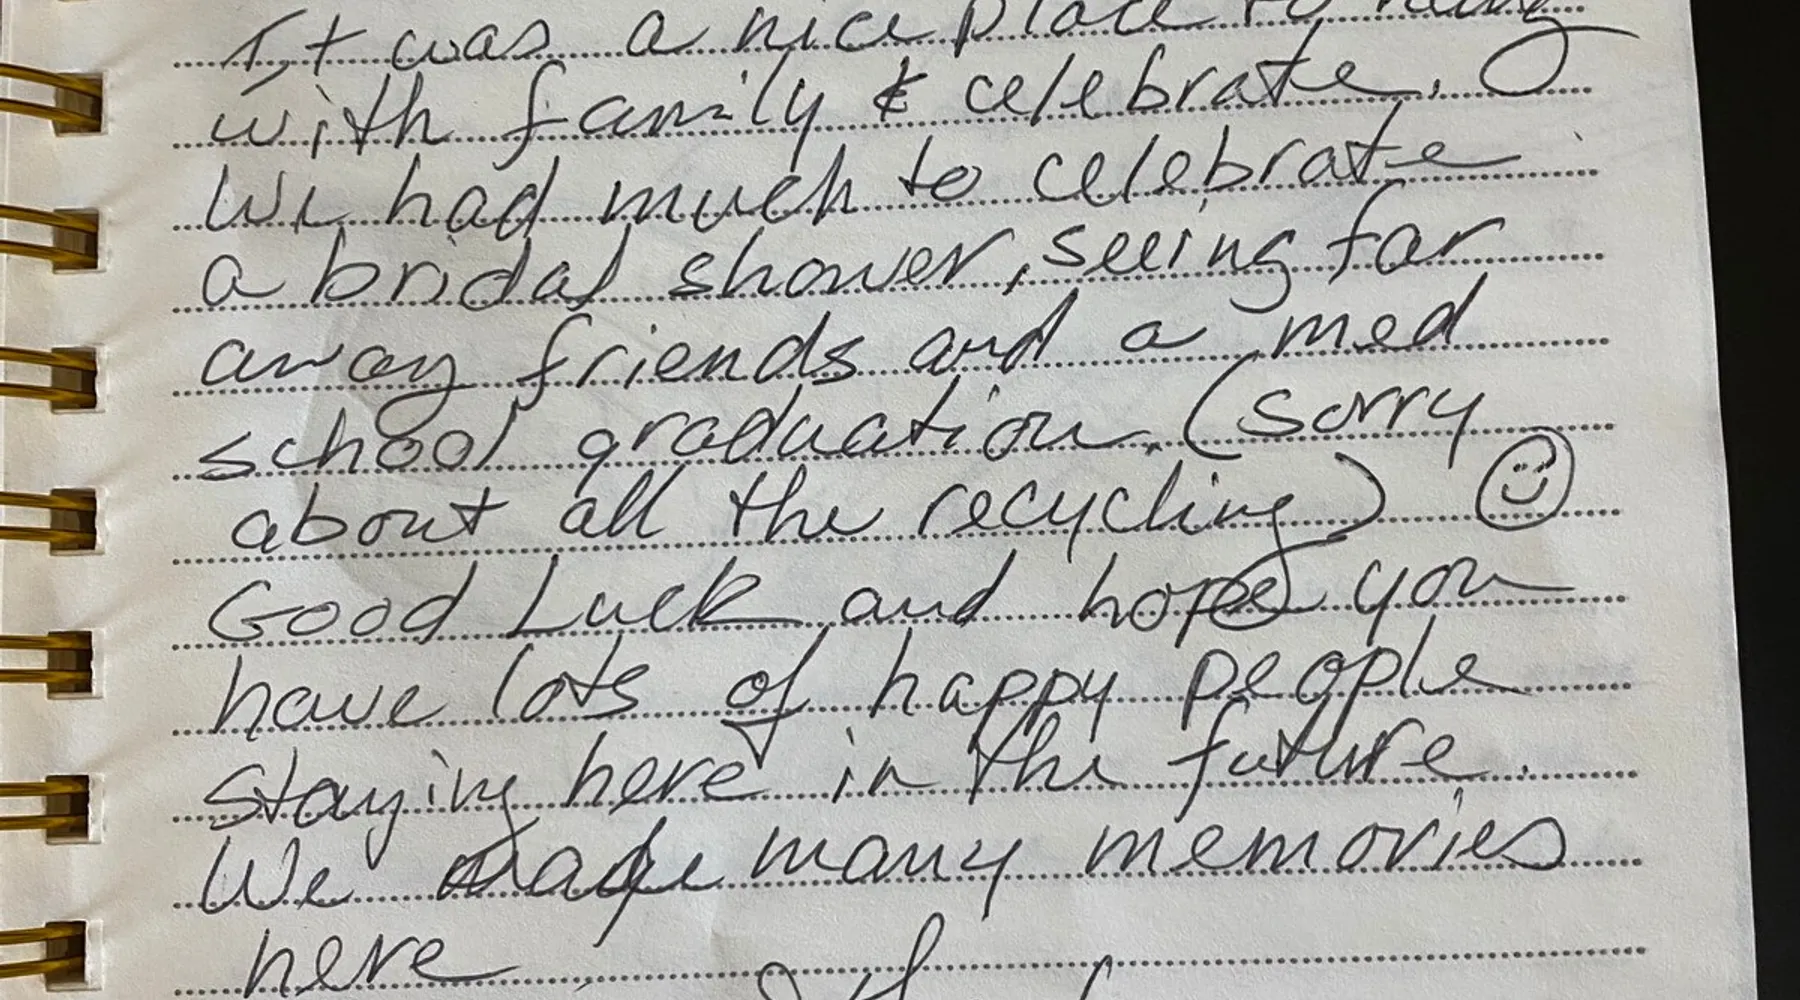 It was a nice place to hang
with family & celebrate.
We had much to celebrate
a bridal shower, seeing far
away friends and a med
school graduation. (sorry
about all the recycling) ☺
Good Luck and hope you
have lots of happy people
staying here in the future.
We made many memories
here